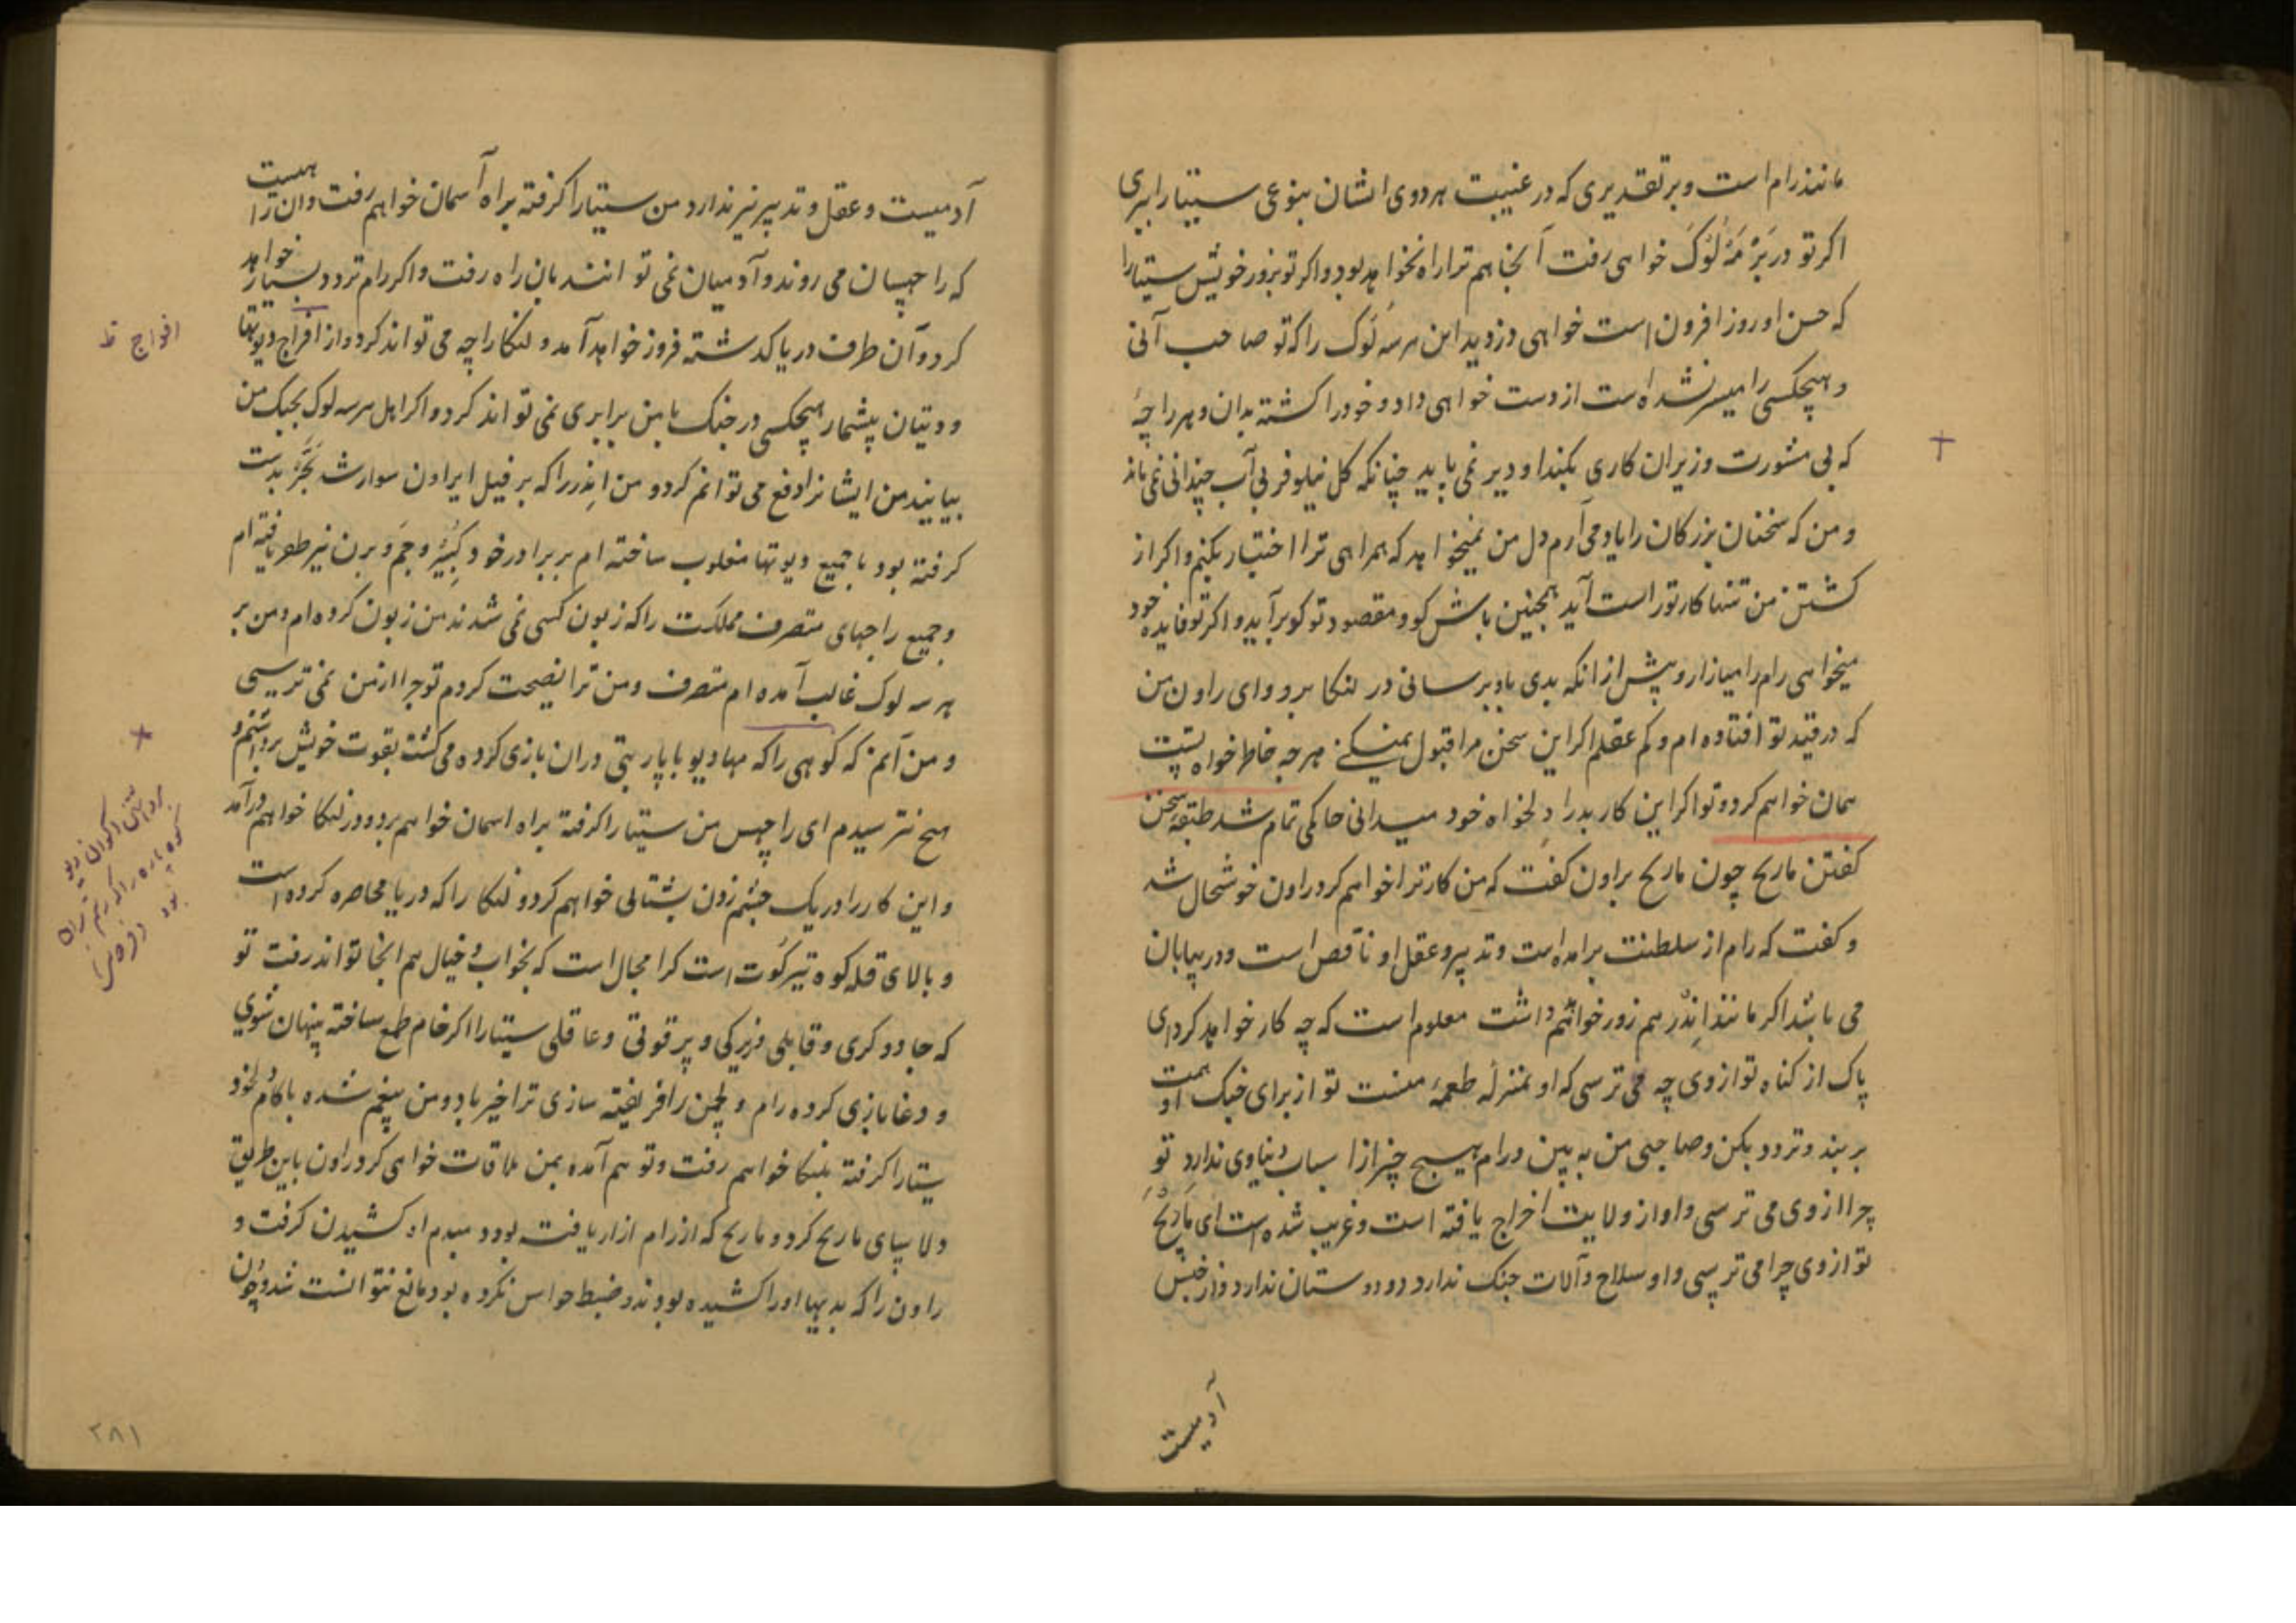 مانند رام است و بر تقدیری که در غیبت هر دوی ایشان بنوعی سیتا را ببری
اکر تو در بَرْمَهْ لُوکَ خواهی رفت آنجا هم ترا راه نخواهد بود و اکر تو بزور خویش سیتا را
که حسن او روز افزون است خواهی دزدید این هر سه لُوک را که تو صاحب آنی
و هیچکس را میسر نشده است از دست خواهی داد و خود را کشته بدان و هر راجهٔ
که بی مشورت وزیران کاری بکند او دیر نمی پاید چنانکه کل نیلوفر بی آب چندانی نمی ماند
و من که سخنان بزرکان را یاد می آرم دل من نمیخواهد که همراهی ترا اختیار بکنم و اکر از
کشتن من تنها کار تو راست آید همچنین باش کو و مقصود تو کو برآید و اکر تو فایده خود
میخواهی رام را میازار و پیش از انکه بدی باو برسانی در لنکا برو و ای راون من
که در قید تو افتاده ام و کم عقلم اکر این سخن مرا قبول نمیکنے هر چه خاطر خواه تست
همان خواهم کرد و تو اکر این کار بد را دلخواه خود میدانی حاکمی تمام شد طبقهٔ سخن
کفتن ماریح چون ماریح براون کفت که من کار ترا خواهم کرد راون خوشحال شد
و کفت که رام از سلطنت برامده است و تدبیر و عقل او ناقص است و در بیابان
می باشد اکر مانند اِنْدَر هم زور خواهد داشت معلوم است که چه کار خواهد کرد ای
پاک از کناه تو از وی چه می ترسی که او بمنزله طعمهٔ منست تو از برای جنک او همت
بربند و تردد بکن و صاحبی من به بین و رام هیچ چیز از اسباب دنیاوی ندارد تو
چرا از وی می ترسی و او از ولایت اخراج یافته است و غریب شده است ای مَارِیْح
تو از وی چرا می ترسی و او سلاح و آلات جنک ندارد و دوستان ندارد و از جنس
آدمیست
آدمیست و عقل و تدبیر نیز ندارد من سیتا را کرفته براه آسمان خواهم رفت و ان راه هست
که راجهسان می روند و آدمیان نمی توانند بان راه رفت و اکر رام تردد بسیار خواهد
کرد و آن طرف دریا کذشته فروز خواهد آمد و لنکا را چه می تواند کرد و از افراج دیوتها
و دیتان بیشمار هیچکس در جنک با من برابری نمی تواند کرد و اکر اهل هر سه لوک بجنک من
بیایند من ایشانرا دفع می توانم کرد و من اِنْدر را که بر فیل ایراون سوار شده بَجْرْ بدست
کرفته بود با جمیع دیوتها مغلوب ساخته ام بر برادر خود کُبِیْر و جَم و بَرن نیز ظفر یافته ام
و جمیع راجهای متصرف مملکت را که زبون کسی نمی شدند من زبون کرده ام و من بر
هر سه لوک غالب آمده ام متصرف و من ترا نصیحت کردم تو چرا از من نمی ترسی
و من آنم که کوهی را که مهادیو با پاربتی دران بازی کرده می کشت بقوت خویش برداشتم و
هیچ نترسیدم ای راجهس من سیتا را کرفته براه اسمان خواهم برد و در لنکا خواهم درآمد
و این کار را در یک چشم زدن بشتابی خواهم کرد و لنکا را که دریا محاصره کرده است
و بالای قله کوه تیرکُوت است کرا مجال است که بخواب و خیال هم انجا تواند رفت تو
که جادوکری و قابلی و زیرکی و پر قوتی و عاقلی سیتا را اکر خام طمع ساخته پنهان شوی
و دغا بازی کرده رام و لچمن را فریفته سازی ترا خیر باد و من بیغم شده با کام خود
سیتا را کرفته بلنکا خواهم رفت و تو هم آمده بمن ملاقات خواهی کرد راون باین طریق
دلاسای ماریح کرد و ماریح که از رام ازار یافته بود دمبدم اه کشیدن کرفت و
راون را که بدیها او را کشیده بودند و ضبط حواس نکرده بود مانع نتوانست شد و چون
افواج ظ
+
×
کوه پاره را که رستم بران
بود
۲۸۱